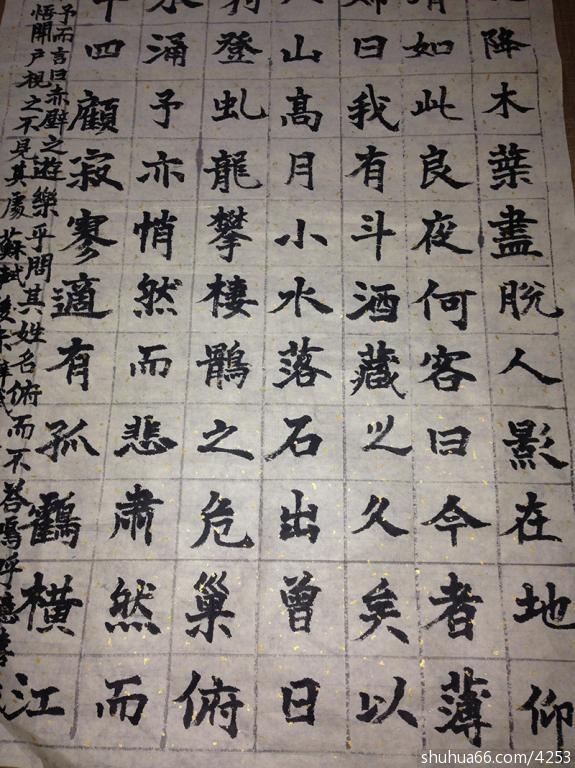 降木葉盡脫人影在地仰
清如此良夜何客曰今者薄
婦曰我有斗酒藏之久矣以
山高月小水落石出曾日
豹登虬龍攀棲鶻之危巢俯
水涌予亦悄然而悲肅然而
半四顧寂寥適有孤鶴橫江
予而言曰赤壁之遊樂乎問其姓名俯而不答嗚呼噫嘻
悟開戶視之不見其處蘇軾後赤壁賦
shuhua66.com/4253